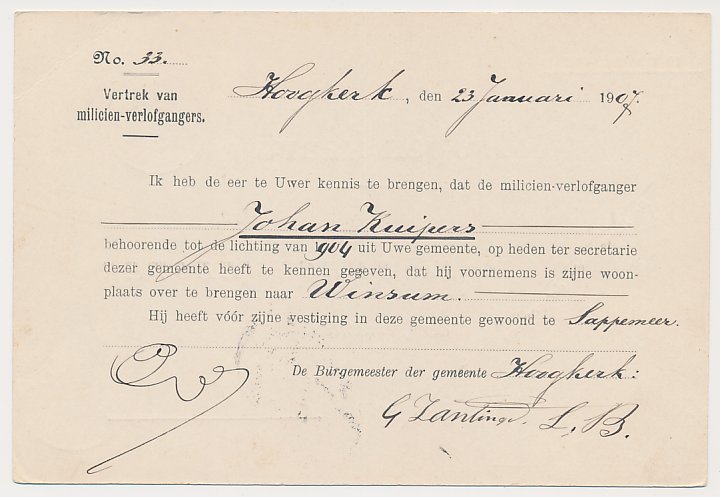 No. 33.
Hoogkerk, den 23 Januari 1907.
Vertrek van
milicien-verlofgangers.
Ik heb de eer te Uwer kennis te brengen, dat de milicien-verlofganger
Johan Kuipers
behoorende tot de lichting van 1904 uit Uwe gemeente, op heden ter secretarie
dezer gemeente heeft te kennen gegeven, dat hij voornemens is zijne woon-
plaats over te brengen naar Winsum.
Hij heeft vóór zijne vestiging in deze gemeente gewoond te Sappemeer.
De Burgemeester der gemeente Hoogkerk:
G Zantinge. L. B.